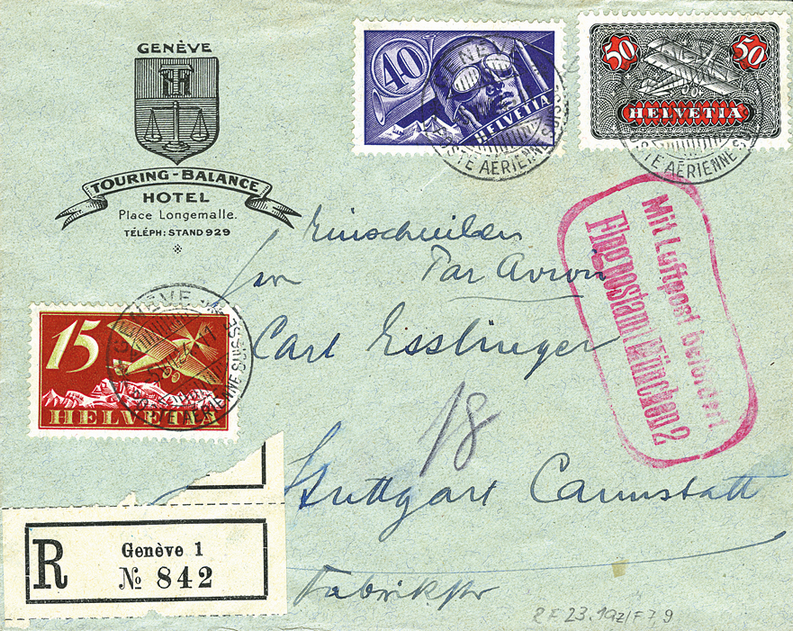 GENÈVE
TOURING-BALANCE
HOTEL
Place Longemalle.
TÉLÉPH: STAND 929
40
HELVETIA
50
50
HELVETIA
POSTE AÉRIENNE SUISSE
Mit Luftpost befördert
Flugpostamt München 2
Einschreiben
Par Avion
Carl Esslinger
15
HELVETIA
GENÈVE
POSTE AÉRIENNE SUISSE
18
Stuttgart Cannstatt
R
Genève 1
№ 842
Fabrikstr